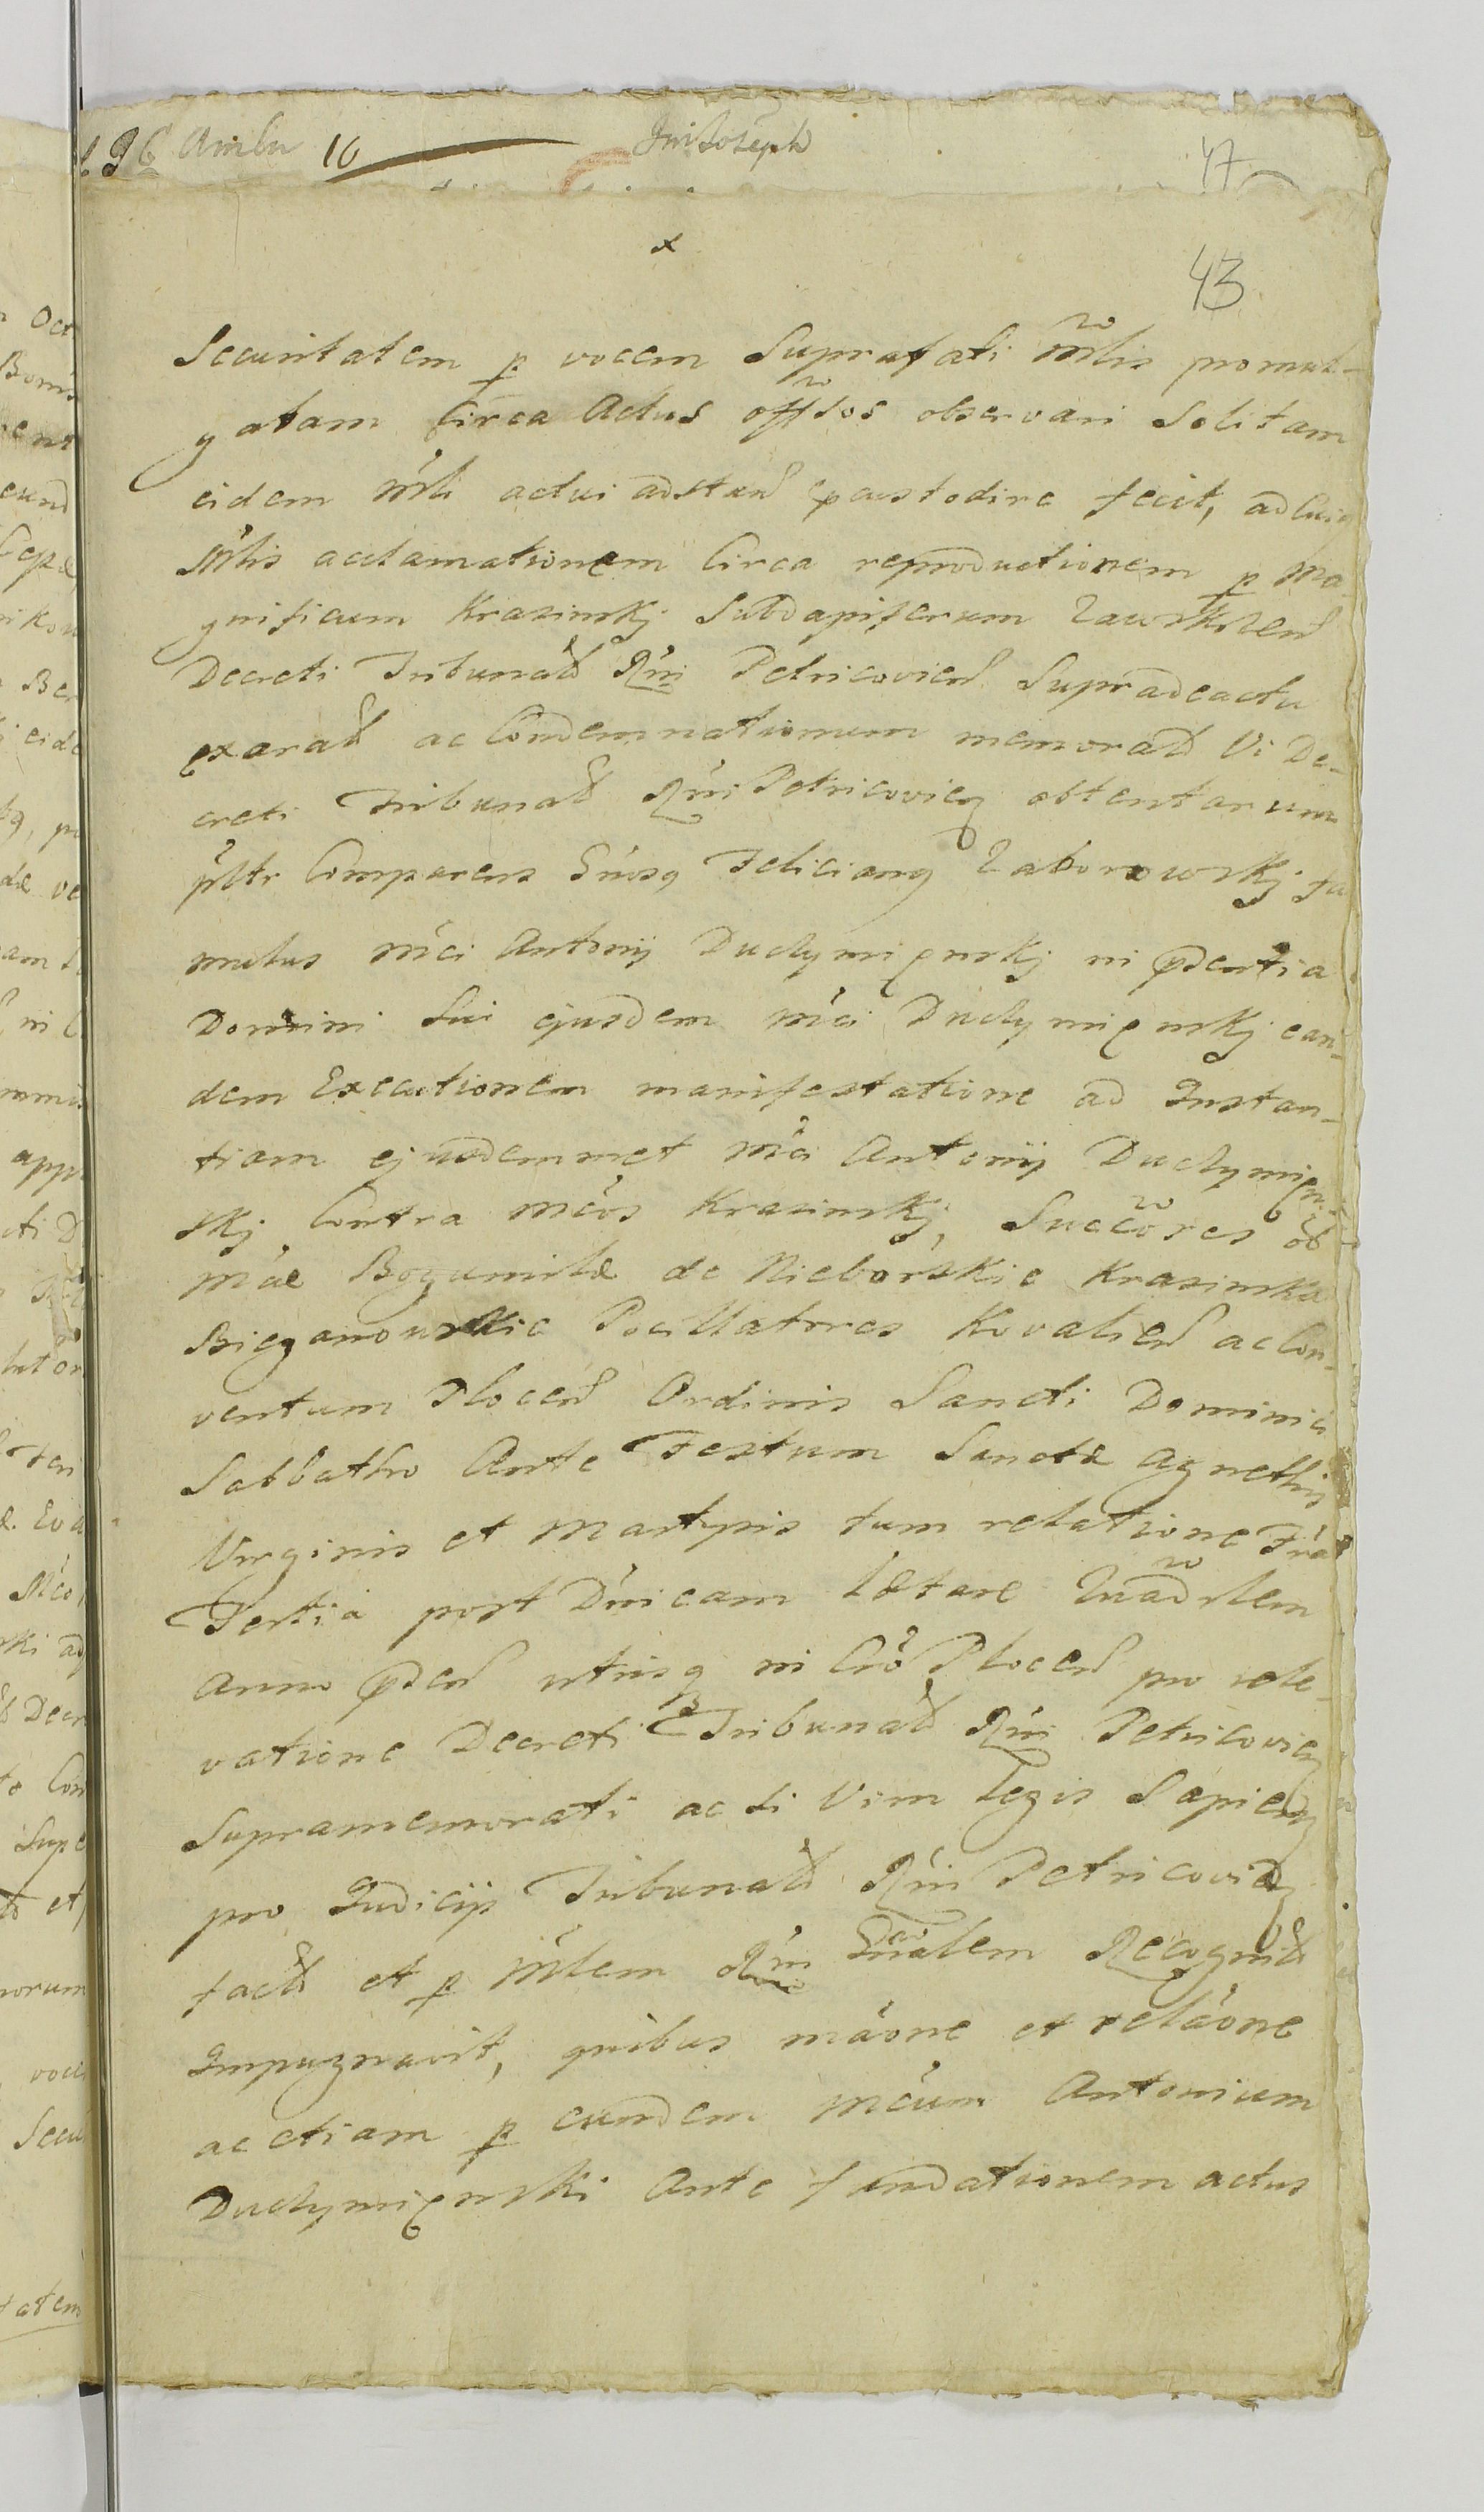 10
47
x
43
Securitatem p vocem Suprafati Mlis promul-
gatam Circa Actus offsos observari Solitam
eidem Mli actui adsten excustodire fecit, ad Cuiq
Mlis acclamationem Circa reproductionem p Ma-
gnificum Krasinskj Subdapiferum
Decreti Tribunal Rni Petricovien Supradeactu
exarat ac Condemnationum memorat Vi De-
creti Tribunal Rni Petricovien obtentarum
pltr Comparens Gnosq Felicianq Zaborowskj fa
mulus Mci Antonij Duczymięnskj in pdentia
Domini Sui ejusdem Mci Duczymięnskj ean-
dem Executionem manifestatione ad Instan-
tiam ejusdemmet Mci Antonij Duczymięn-
skj Contra Mcos Krasinskj, Succores ol
Mcae Bogumilæ de Nieborskie Krasinska
Bieganowskie Pocillatores Kovalien ac Con-
ventum Plocen Ordinis Sancti Dominici
Sabbatho Ante Festum Sanctæ Agnethis
Virginis et Martyris tum relatione Fra
Tertia post Dnicam Lætare Quadrlem
Anno pden utrisq in Cro Plocen pro rele-
vatione Decreti Tribunal Rni Petricovien
Supramemorati ac si Vim legis Sapien
pro Judicijs Tribunal Rni Petricovien
fact et p Mlem Rni Gnalem Recognit
Impugnavit, quibus maone et relaone
ac etiam p eundem Mcum Antonium
Duczymięnski Ante fundationem actus